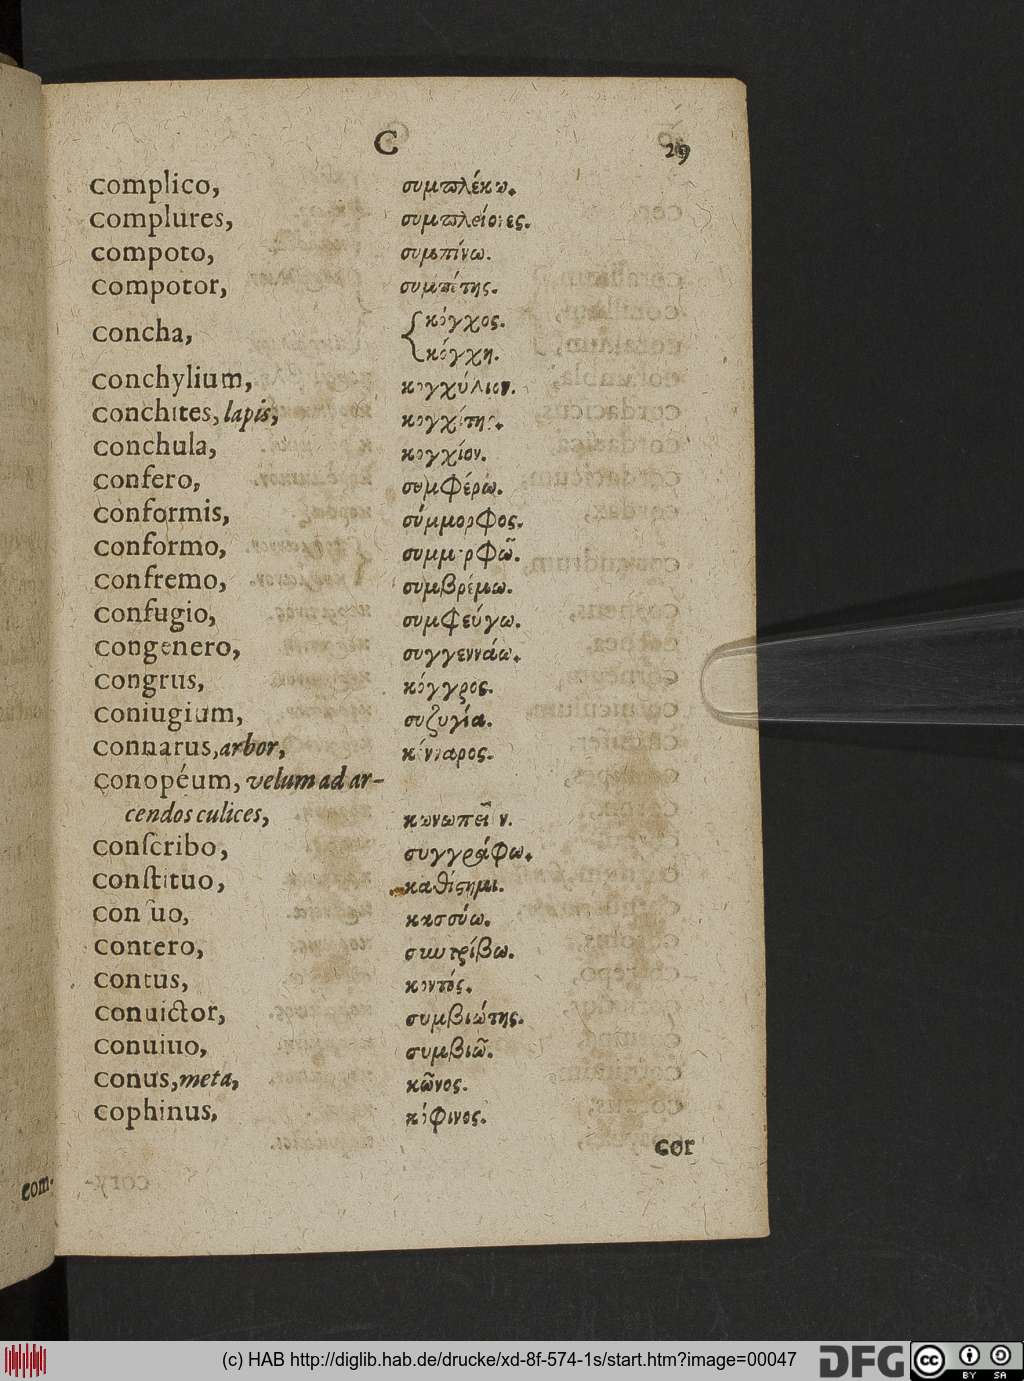 C
29
complico, συμπλέκω.
complures, συμπλείονες.
compoto, συμπίνω.
compotor, συμπότης.
concha, κόγχος.
κόγχη.
conchylium, κογχύλιον.
conchites, lapis, κογχίτης.
conchula, κογχίον.
confero, συμφέρω.
conformis, σύμμορφος.
conformo, συμμορφῶ.
confremo, συμβρέμω.
confugio, συμφεύγω.
congenero, συγγεννάω.
congrus, κόγγρος.
coniugium, συζυγία.
connarus, arbor, κόνναρος.
conopéum, velum ad ar-
cendos culices, κωνωπεῖον.
conſcribo, συγγράφω.
conſtituo, καθίςημι.
conſuo, κασσύω.
contero, συντρίβω.
contus, κοντός.
conuictor, συμβιώτης.
conuiuo, συμβιῶ.
conus, meta, κῶνος.
cophinus, κόφινος.
cor
com-
(c) HAB http://diglib.hab.de/drucke/xd-8f-574-1s/start.htm?image=00047
DFG
cc
BY SA